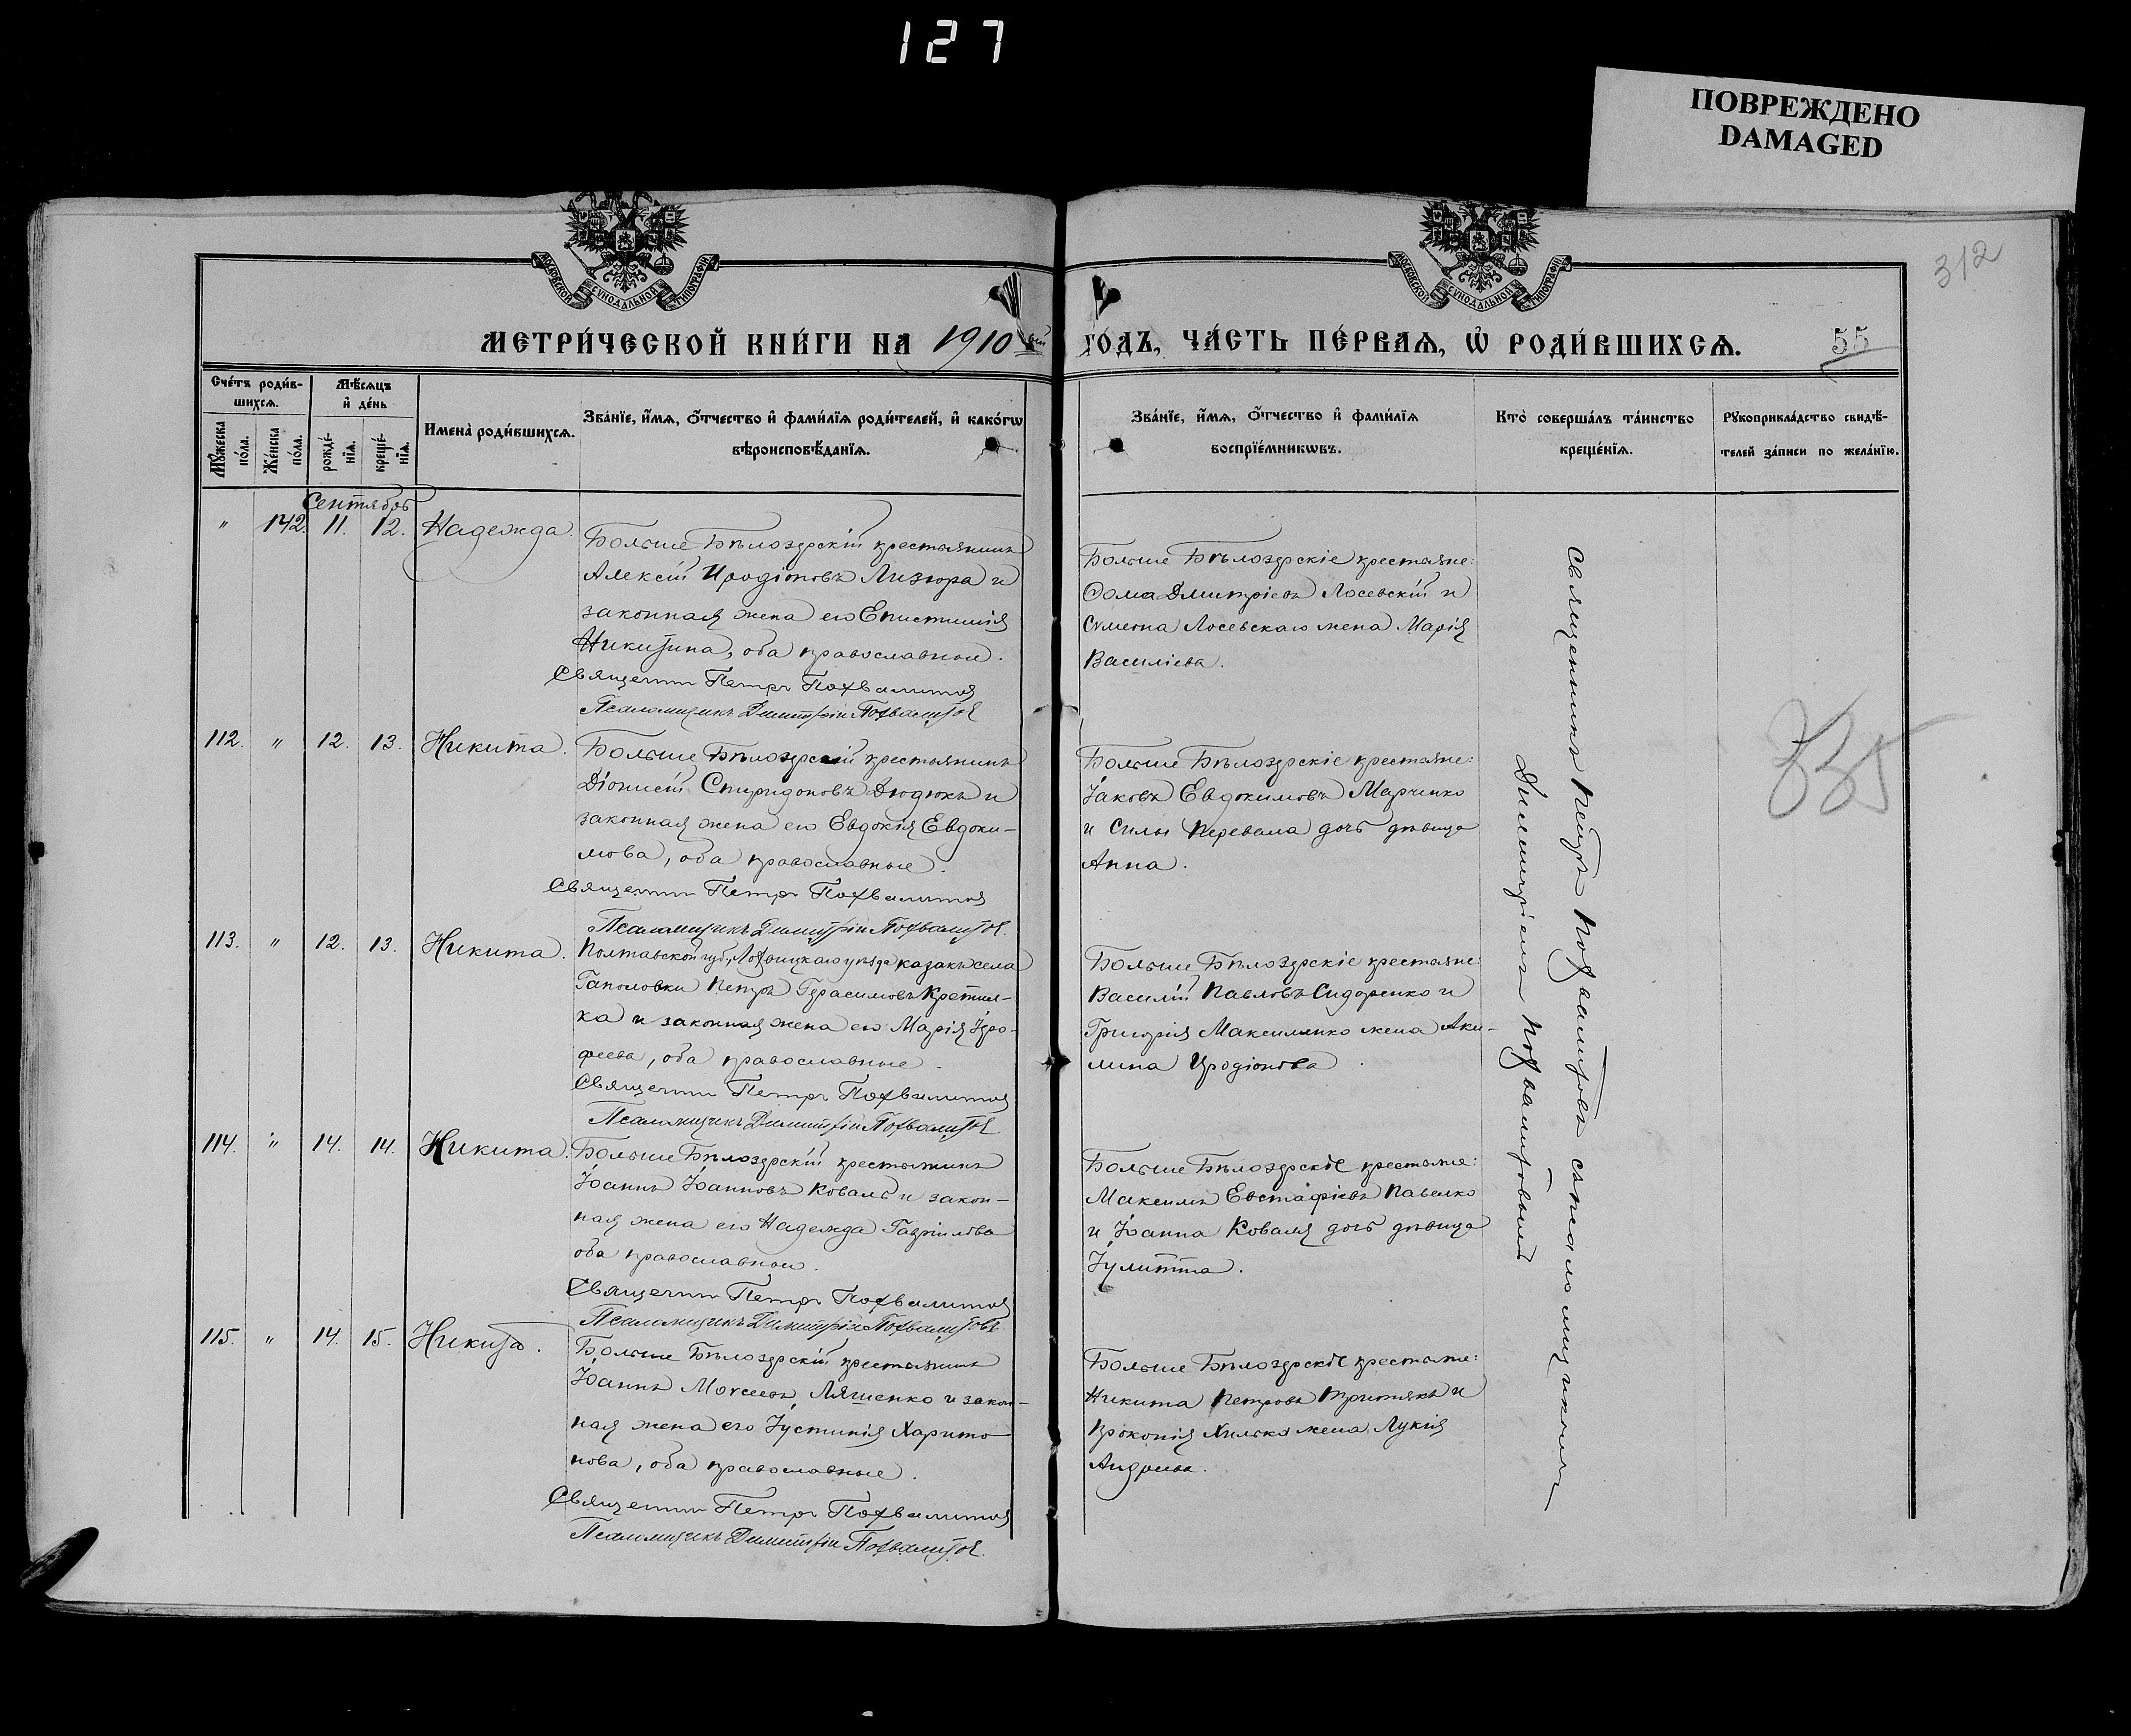 127
ПОВРЕЖДЕНО
DAMAGED
312
МОСКОВСКОЙ СѴНОДАЛЬНОЙ ТИПОГРАФІИ
МОСКОВСКОЙ СѴНОДАЛЬНОЙ ТИПОГРАФІИ
МЕТРИ́ЧЕСКОЙ КНИ́ГИ НА 1910 ГО́ДЪ, ЧА́СТЬ ПЕ́РВАѦ, Ѽ РОДИ́ВШИХСѦ.
55
Сче́тъ роди́в-
шихсѧ.
Мѣ́сѧцъ
и҆ де́нь
Мꙋ́жеска
по́ла.
Же́нска
по́ла.
рожде́-
нїѧ.
креще́-
нїѧ.
Имена̀ роди́вшихсѧ.
Зва́нїе, и҆́мѧ, ѻ҆́тчество и҆ фами́лїѧ роди́телей, и҆ како́гѡ
вѣроисповѣ́данїѧ.
Зва́нїе, и҆́мѧ, ѻ҆́тчество и҆ фами́лїѧ
воспрїе́мникѡвъ.
Кто̀ соверша́лъ та́инство
креще́нїѧ.
Рꙋкоприкла́дство свидѣ́-
телей за́писи по жела́нїю.
Сентябрь
" 142. 11. 12. Надежда.
Больше Бѣлозерскій крестьянинъ
Алексій Иродіоновъ Лизюра и
законная жена его Епистимія
Никитина, оба православные.
Священник Петръ Похвалитов
Псаломщикъ Димитрій Похвалитов
Больше Бѣлозерскіе крестьяне:
Ѳома Дмитріевъ Лосевскій и
Сѵмеона Лосевскаго жена Марія
Василіева.
112. " 12. 13. Никита.
Больше Бѣлозерскій крестьянинъ
Діонисій Спиридоновъ Дюдюкъ и
законная жена его Евдокія Евдоки-
мова, оба православные.
Священник Петръ Похвалитов
Псаломщикъ Димитрій Похвалитов.
Больше Бѣлозерскіе крестьяне:
Іаковъ Евдокимовъ Марченко
и Силы Перевала дочь дѣвица
Анна.
113. " 12. 13. Никита.
Полтавской губ., Лохвицкаго уѣзда казакъ села
Гаполовки Петръ Герасимовъ
и законная жена его Марія Іеро-
феева, оба православные.
Священник Петръ Похвалитов
Псаломщикъ Димитрій Похвалитов
Больше Бѣлозерскіе крестьяне:
Василій Павловъ Сидоренко и
Григорія Максименко жена Аки-
лина Иродіонова.
114. " 14. 14. Никита.
Больше Бѣлозерскій крестьянинъ
Іоаннъ Іоанновъ Коваль и закон-
ная жена его Надежда Гавріилова
оба православные.
Священник Петръ Похвалитов
Псаломщикъ Димитрій Похвалитовъ
Больше Бѣлозерскіе крестьяне:
Максимъ Евстафіевъ Павелко
и Іоанна Коваля дочь дѣвица
Іулитта.
115. " 14. 15. Никита.
Больше Бѣлозерскій крестьянинъ
Іоаннъ Моѵсеевъ Ляшенко и закон-
ная жена его Іустинія Харито-
нова, оба православные.
Священник Петръ Похвалитов
Псаломщикъ Димитрій Похвалитов.
Больше Бѣлозерскіе крестьяне:
Никита Петровъ Притякъ и
Прокопія Хилько жена Лукія
Андреева.
Священникъ Петръ Похвалитовъ съ псаломщикомъ
Димитріемъ Похвалитовымъ
335